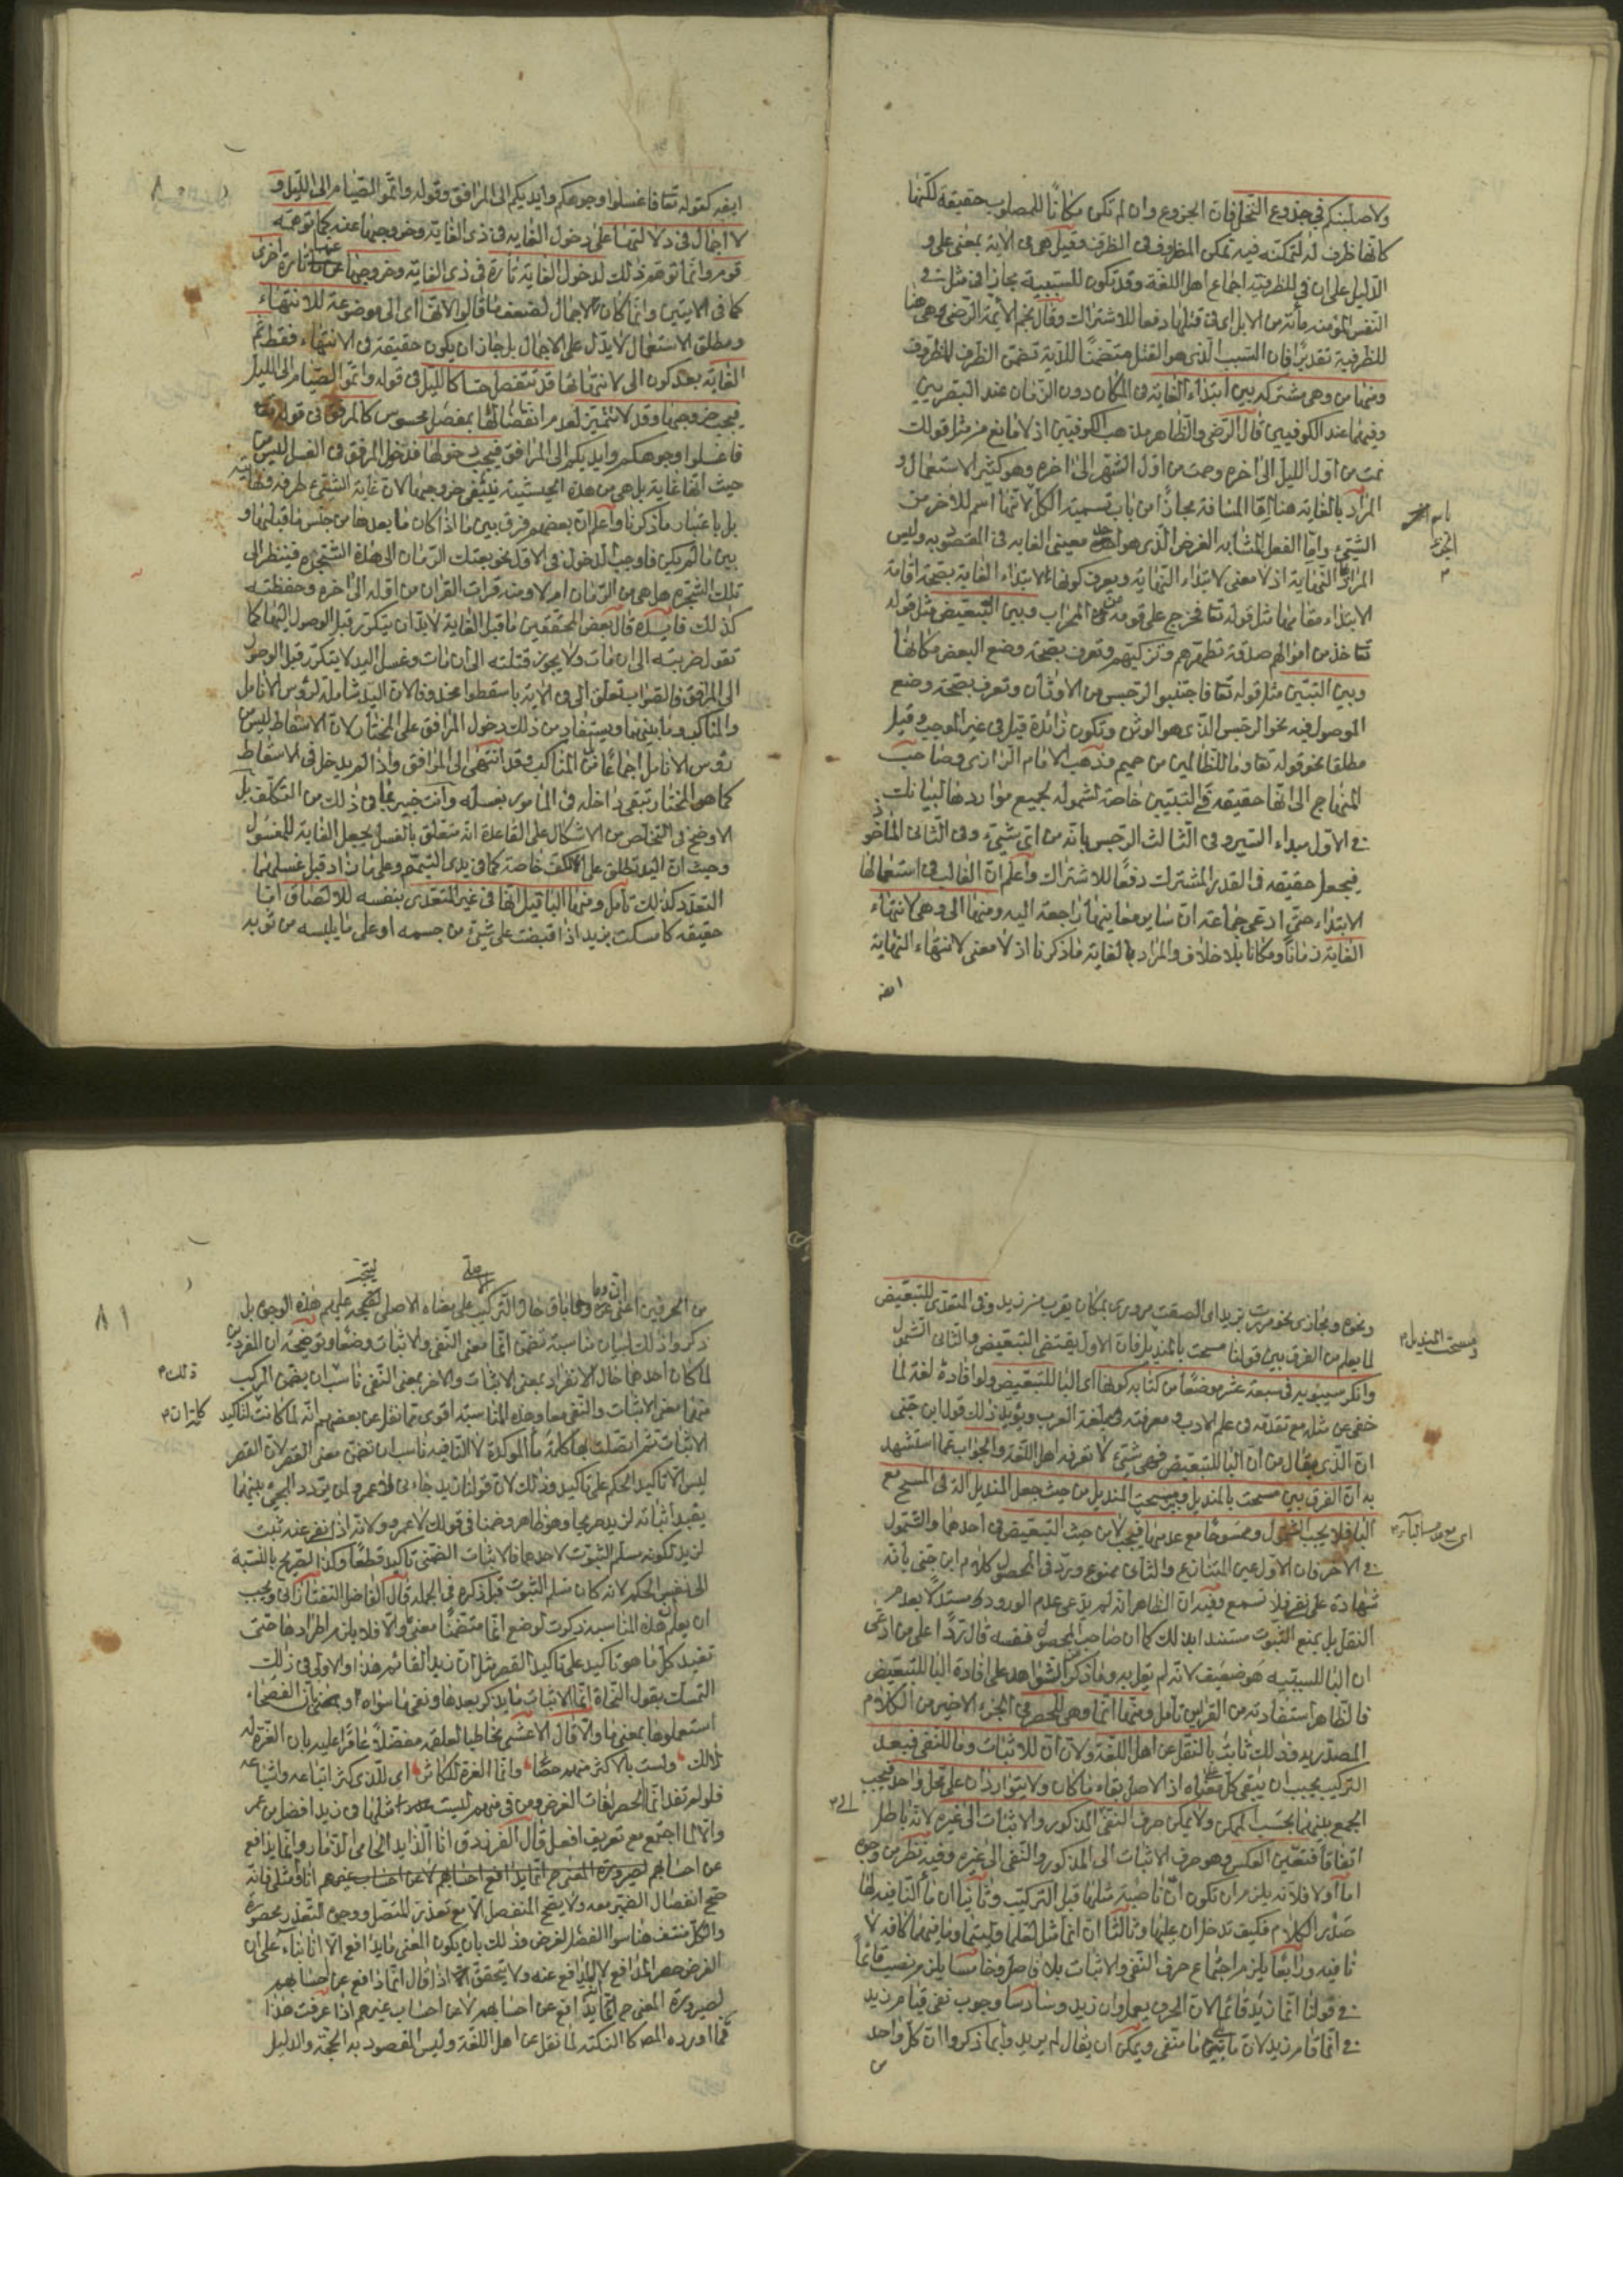 ولاصلبنكم في جذوع النخل فان الجذوع وان لم تكن مكانًا للمصلوب حقيقة لكنها
كانها ظرف له لتمكنه فيه تمكن المظروف في الظرف وقيل هي في الاية بمعنى على و
الدليل على ان في للظرفية اجماع اهل اللغة وقد تكون للسببية مجازا في مثل في
النفس المؤمنة مأنة من الابل اى في قتلها دفعا للاشتراك وقال نجم الأيمة الرضى وهى هنا
للظرفية تقديرًا فان السبب الذى هو القتل متضمنًا للدية تضمن الظرف للمظروف
ومنها من وهى مشتركة بين ابتداء الغاية في المكان دون الزمان عند البصريين
وفيهما عند الكوفيين قال الرضى والظاهر مذهب الكوفيين اذ لا مانع من مثل قولك
نمت من اول الليل الى اخره وصمت من اول الشهر الى اخره وهو كثير الاستعمال و
المراد بالغاية هنا اما المسافة مجازًا من باب تسمية الكل لانها اسم للاخر من
باسم الجزء
الشيئ واما الفعل المشابه الغرض الذى هو احد معينى الغايه في المقصود به وليس
المراد النهاية اذ لا معنى لابتداء النهاية ويعرف كونها لابتداء الغاية بصحة اقامة
الابتداء مقامها مثل قوله تعا فخرج على قومه من المحراب وبين التبعيض مثل قوله
تعا خذ من اموالهم صدقة تطهرهم وتزكيتهم وتعرف بصحة وضع البعض مكانها
وبين التبيين مثل قوله تعا فاجتنبوا الرجس من الاوثان وتعرف بصحة وضع
الموصول فيه نحو الرجس الذى هو الوثن وتكون زائدة قيل في غير الموجب وقيل
مطلقا نحو قوله تعا وما للظالمين من حميم وذهب الامام الرازى وصاحب
المنهاج الى انها حقيقة في التبيين خاصة لشموله لجميع مواردها لبيانك
في الاول مبداء السير وفى الثالث الرجس بانه من اى شيئ وفى الثانى المأخوذ
فيجعل حقيقة في القدر المشترك دفعًا للاشتراك واعلم ان الغالب في استعمالها
الابتداء حتى ادعى جماعة ان ساير معاينها راجعة اليه ومنها الى وهى لانتهاء
الغاية زمانًا ومكانا بلا خلاف والمراد بالغاية ماذكرنا اذ لا معنى لانتهاء النهاية
ايضه كقوله تعا فاغسلوا وجوهكم وايديكم الى المرافق وقوله واتموا الصيام الى الليل و
لا اجمال في دلالتها على دخول الغايه في ذى الغاية وخروجها عنه كما توهمه
قوم وانما توهم ذلك لدخول الغاية تارة في ذى الغاية وخروجها عنها تارة اخرى
كما في الايتين وانما كان الاجمال لضعف ما قالوا لانها اى الى موضوعة للانتهاء
ومطلق الاستعمال لايدل على الاجمال بل جاز ان يكون حقيقة في الانتهاء فقط ثم
الغاية بعد كون الى لانتهائها قد تنفصل حسا كالليل في قوله واتموا الصيام الى الليل
فيجب خروجها وقد لا تتميز لعدم انفصالها بمفصل محسوس كالمرفق في قوله تعا
فاغسلوا وجوهكم وايديكم الى المرافق فيجب دخولها فدخول المرفق في الغسل ليس من
حيث انها غاية بل هى من هذه الحيثية تقتضى خروجها لان غاية الشيئ طرفه ونهايته
بل باعتبار ما ذكرنا واعلم ان بعضهم فرق بين ما اذا كان ما بعدها من جنس ما قبلها و
بين ما لم يكن فاوجب الدخول في الاول نحو بعتك الرمان الى هذة الشجرة فينظر الى
تلك الشجرة هل هى من الرمان ام لا ومنه قرات القران من اوله الى اخره وحفظته
كذلك فايدة قال بعض المحققين ما قبل الغاية لابد ان يتكرر قبل الوصول اليها كما
تقول ضربته الى ان مات ولا يجوز قتلته الى ان مات وغسل اليد لا يتكرر قبل الوصول
الى المرفق فالصواب تعلق الى في الاية باسقطوا محذوفا لان اليد شاملة لرؤس الانامل
والمناكب وما بينهما ويستفاد من ذلك دخول المرافق على المختار لان الاسقاط ليس من
رؤس الانامل اجماعًا بل من المناكب وقد انتهى الى المرافق واذا لم يدخل في الاسقاط
كما هو المختار تبقى داخلة في المامور بغسله وانت خبير بما في ذلك من التكلف بل
الاوضح في التخلص من الاشكال على القاعدة انه متعلق بالغسل بجعل الغاية للمغسول
وحيث ان اليد تطلق على الكف خاصة كما في يدى التيمم وعلى ما زاد قيل غسلهما
التعدد كذلك تأمل ومنها البا قيل انها في غير المتعدى بنفسه للالصاق اما
حقيقة كامسكت بزيد اذا قبضت على شيئ من جسمه او على ما يلبسه من ثوب
ونحوه ومجازى نحو مررت بزيد اى الصقت مرورى بمكان يقرب من زيد وفى المتعدى للتبعيض
لما يعلم من الفرق بين قولنا مسحت بالمنديل فان الاول يقتضى التبعيض والثانى الشمول
ومسحت المنديل
وانكر سيبويه في سبعة عشر موضعًا من كتابه كونها اى البا للتبعيض ولو افاده لغة لما
خفى عن مثله مع تقدمه في علم الادب ومعرفته بلغة العرب ويؤيد ذلك قول ابن جنى
ان الذى يقال من ان البا للتبعيض فهى شيئ لا تعرفه اهل اللغة والجواب عما استشهد
به ان الفرق بين مسحت بالمنديل وبين مسحت المنديل من حيث جعل المنديل الة في المسح مع
البا فلا يجب الشمول وممسوحًا مع عدمها فيجب لا من حيث التبعيض في احدهما والشمول
في الاخر فان الاول عين المتنازع والثانى ممنوع ويرد في المحصول كلام ابن جنى بانه
شهادة على نفى فلا تسمع وفيه ان الظاهر انه لم يدع عدم الورود مستدلا بعدم
النقل بل يمنع الثبوت مستندا بذلك كما ان صاحب المحصول نفسه قال ردًا على من ادعى
ان البا للسببيه هو ضعيف لانه لم يقل به وما ذكر من الشواهد على افادة البا للتبعيض
فالظاهر استفادته من القراين تامل ومنها انما وهى للحصر في الجزء الاخير من الكلام
المصدر به وذلك ثابت بالنقل عن اهل اللغة ولان ان للاثبات وما للنفى فبعد
التركيب يجب ان يبقى كل على معناه اذ الاصل بقاء ما كان ولا يتواردان على محل واحد فيجب
الجمع بينهما بحسب الممكن ولا يمكن صرف النفى الى المذكور والاثبات الى غيره لانه باطل
اتفاقًا فتعين العكس وهو صرف الاثبات الى المذكور والنفى الى غيره وفيه نظر من وجوه
اما اولا فلانه يلزم ان تكون ان ناصبة مثلها قبل التركيب وثانيا ان ما النافيه لها
صدر الكلام فكيف تدخل ان عليها وثالثا ان انما مثل لعلما وليتما وما فيهما كافة لا
نافيه ورابعا يلزم اجتماع حرف النفى والاثبات بلا فاصل وخامسا يلزم نصب قائمًا
في قولنا انما زيد قائما لان الحرف يعمل وان زيد وسادسا وجوب نفى قيام زيد
في انما قام زيد لان ما يلى ما منفى ويمكن ان يقال لم يريدوا بما ذكروا ان كل واحد
من الحرفين اعنى ان وما باق حال التركيب على معناه الاصلى ليتجه عليهم هذه الوجوه بل
ذكروا ذلك لبيان مناسبة تضمن انما معنى النفى والاثبات وضعًا وتوضيحه ان المفردين
لما كان احدهما حال الانفراد بمعنى الاثبات والاخر بمعنى النفى ناسب ان يضمن المركب
منهما معنى الاثبات والنفى معا وهذه المناسبة اقوى مما نقل عن بعضهم انه لما كانت لتاكيد
الاثبات ثم اتصلت بها كلمة ما الموكدة لا النافيه ناسب ان تضمن معنى القصر لان القصر
ليس الا تاكيد الحكم على تاكيد وذلك لان قولنا زيد جاءنى لا عمرو لمن يردد المجئ بينهما
يفيد اثباته لزيد صريحا وهو ظاهر وضمنا في قولك لا عمرو ولانه اذا نفى عنه ثبت
لزيد لكونه مسلم الثبوت لاحدهما فالاثبات الضمنى تاكيد قطعًا وكذا الصريح بالنسبة
الى نفس الحكم لانه كان مسلم الثبوت قبل ذكره في الجملة قال الفاضل التفتازانى ويجب
ان يعلم ان هذه المناسبة ذكرت لوضع انما متضمنًا معنى والا فلا يلزم اطرادها حتى
تفيد كل ما هو تاكيد على تاكيد القصر مثل ان زيدا لقائم هذا والاولى في ذلك
التمسك بقول النحاة انما لاثبات ما يذكر بعدها ونفى ما سواه او بان الفصحاء
استعملوها بمعنى ما والا قال الاعشى مخاطبا لعلقمة مفضلًا عامرًا عليه بان العزة له
لذلك ولست بالاكثر منهم حصًا وانما العزة للكاثر اى للذى كثر اتباعه واشياعه
فلو لم تفد انما الحصر لفات الغرض ومن في منهم ليست مثلها في زيد افضل من عمر
والا لما اجتمع مع تعريف افعل قال الفرزدق انا الذايد الحامى الذمار وانما يدافع
عن احسابهم انا او مثلى فانه
صح انفصال الضمير معه ولا يصح المنفصل الا مع تعذر المتصل ووجوه التعذر محصورة
والكل منتف هنا سوا الفصل لغرض وذلك بان يكون المعنى ما يدافع الا انا بناء على ان
الغرض حصر المدافع لا المدافع عنه ولا يتحقق اذا قال انما ادافع عن احسابهم
لصيرورة المعنى ح انما يدافع عن احسابهم لا عن احساب غيرهم اذا عرفت هذا
فما اورده المص كالنكتة لما نقل عن اهل اللغة وليس المقصود به الحجة والدليل
٨١